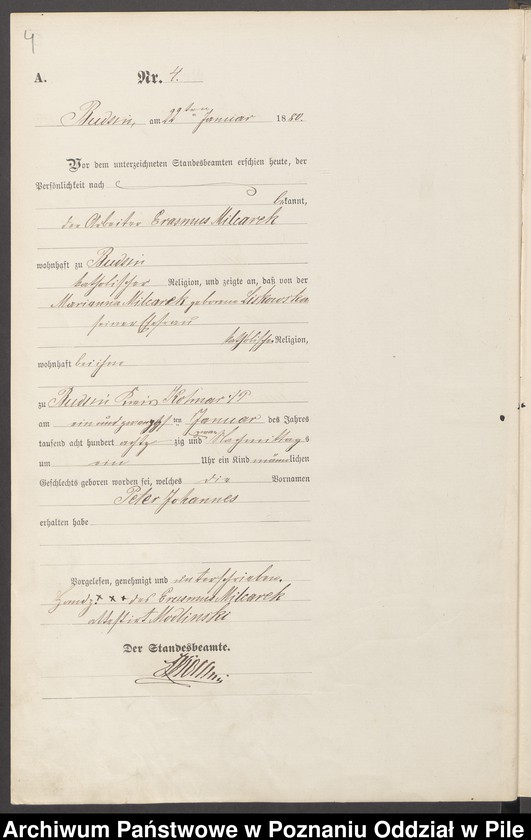 4
A. Nr. 4.
Budsin, am 22ten Januar 1880.
Vor dem unterzeichneten Standesbeamten erschien heute, der
Persönlichkeit nach
bekannt,
der Arbeiter Erasmus Milcarek
wohnhaft zu Budsin
katholischer Religion, und zeigte an, daß von der
Marianna Milcarek geborene Liskowska
seiner Ehefrau
katholischer Religion,
wohnhaft bei ihm
zu Budsin Kreis Kolmar i/P
am ein und zwanzigsten Januar des Jahres
tausend acht hundert achtzig und Nachmittags
um ein Uhr ein Kind männlichen
Geschlechts geboren worden sei, welches die Vornamen
Peter Johannes
erhalten habe
Vorgelesen, genehmigt und unterschrieben.
Handz. x x x des Erasmus Milcarek
attestirt Modlinski
Der Standesbeamte.
Archiwum Państwowe w Poznaniu Oddział w Pile